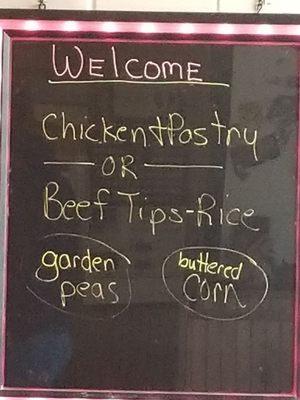 WElcome
Chicken+Pastry
OR
Beef Tips-Rice
garden
peas
buttered
corn